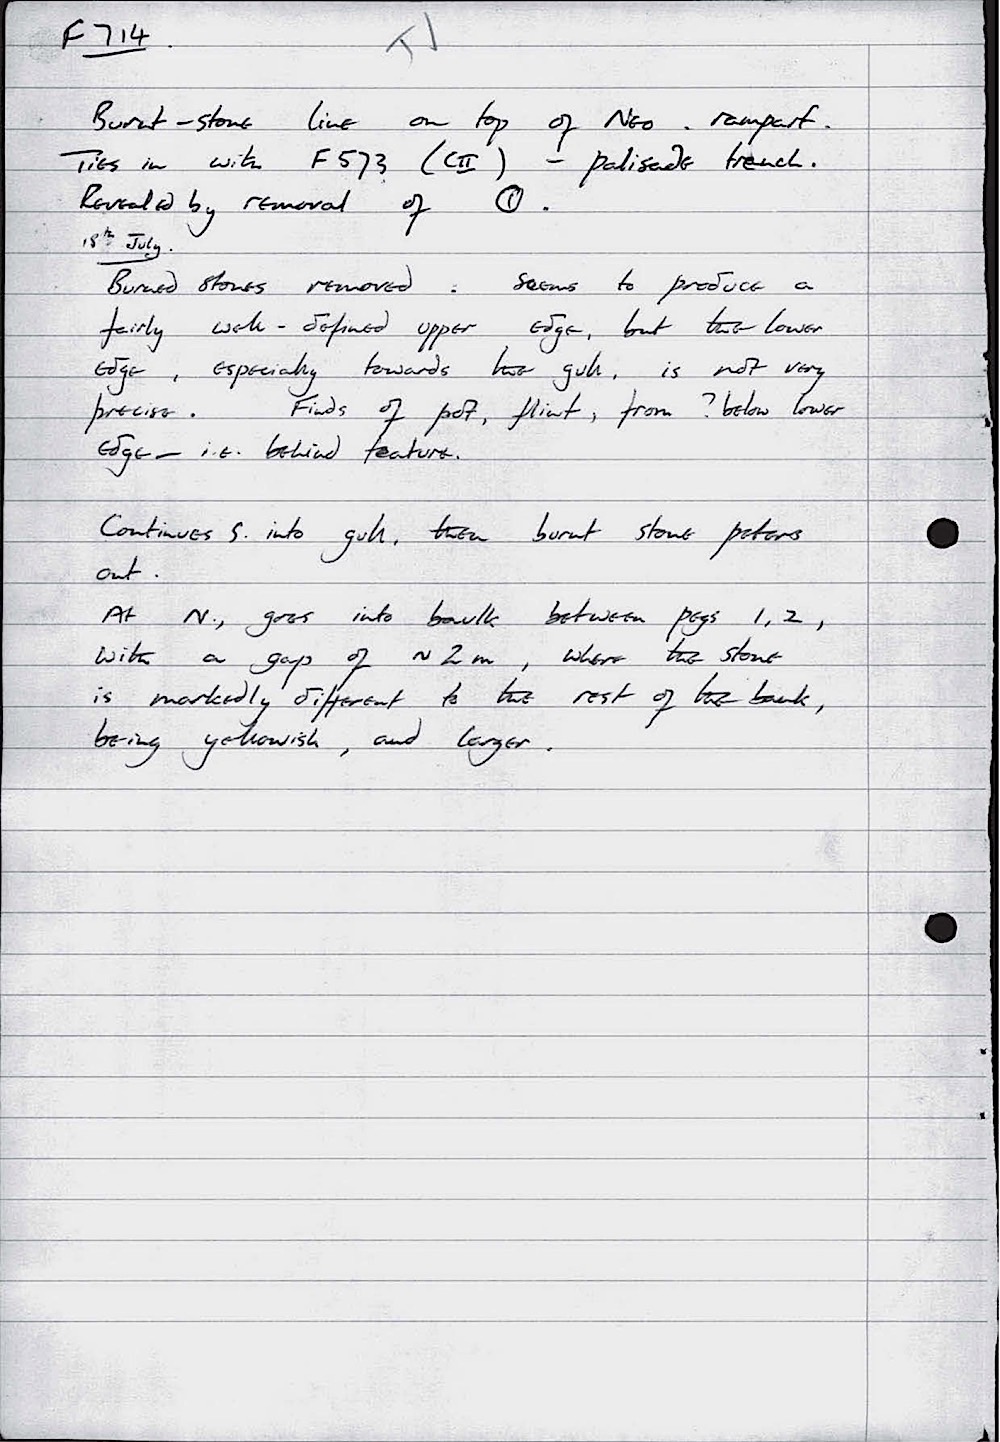 F 714.
Burnt-stone line on top of Neo. rampart.
Ties in with F573 (CII) - palisade trench.
Revealed by removal of ①.
18th July.
Burned stones removed. Seems to produce a
fairly well-defined upper edge, but the lower
edge, especially towards the gull, is not very
precise. Finds of pot, flint, from ?below lower
edge - i.e. behind feature.
Continues S. into gull, then burnt stone peters
out.
At N., goes into baulk between pegs 1, 2,
with a gap of ~ 2 m, where the stone
is markedly different to the rest of the bank,
being yellowish, and larger.